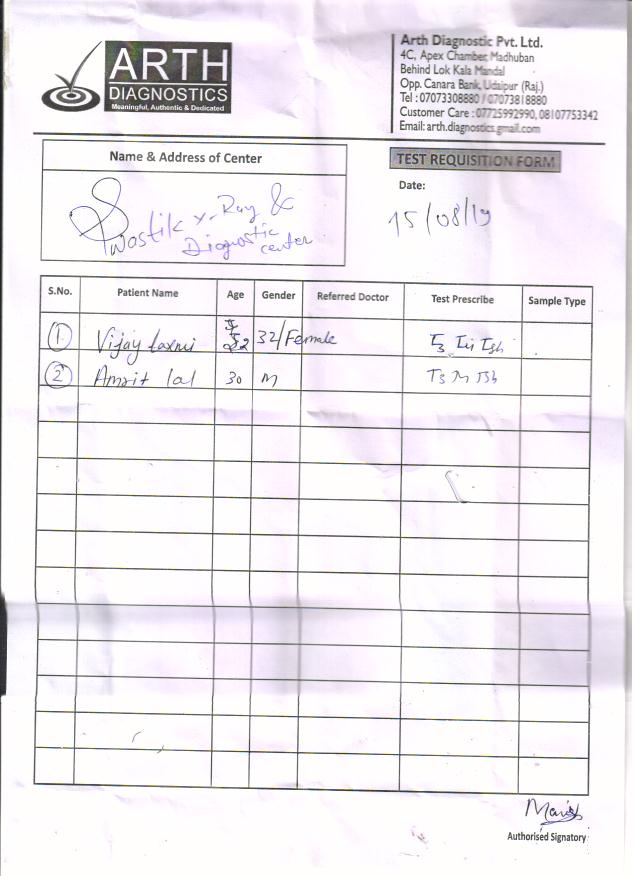 ARTH
DIAGNOSTICS
Meaningful, Authentic & Dedicated
Arth Diagnostic Pvt. Ltd.
4C, Apex Chamber, Madhuban
Behind Lok Kala Mandal
Opp. Canara Bank, Udaipur (Raj.)
Tel : 07073308880 / 07073818880
Customer Care : 07725992990, 08107753342
Email: arth.diagnostics.gmail.com
Name & Address of Center
Swastik X-Ray &
Diagnostic
center
TEST REQUISITION FORM
Date:
15/08/19
S.No. Patient Name Age Gender Referred Doctor Test Prescribe Sample Type
1 Vijay laxmi 32/Female T3 Tsh
2 Amrit lal 30 M T3 Tsh
Authorised Signatory